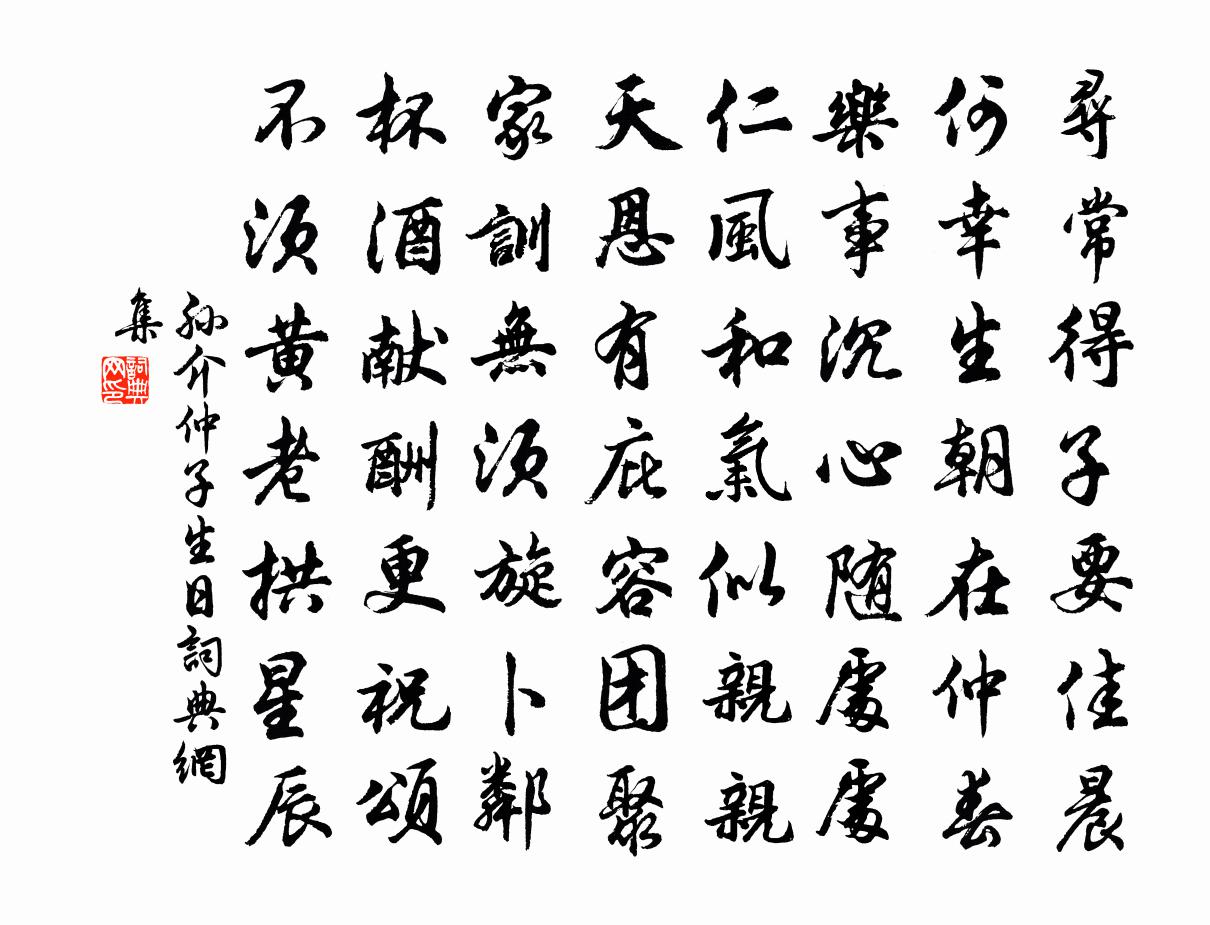 尋常得子要佳晨
何幸生朝在仲春
樂事沉心随處處
仁風和氣似親親
天恩有庇容团聚
家訓無須旋卜鄰
杯酒献酬更祝頌
不須黄老拱星辰
孫介仲子生日詞典網
集
詞典
网印